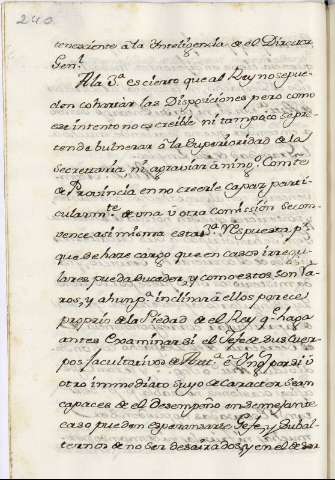 240
teneciente à la Inteligencia de el Director
Gen.l
A la 3.a es cierto que al Rey no se pue-
den cohartar las Disposiciones pero como
ese intento no es creible ni tampoco se pre-
tende bulnerar à la Superioridad de la
Secrettaria ni agraviar à ning.o Com.te
de Provincia en no creerle capaz parti-
cularm.te de una ù otra comission se con-
vence asi misma esta 3.a Respuesta p.r
que se haze cargo que en casos irregu-
lares pueda suceder, y como estos son ra-
ros, y ahun p.a inclinar à ellos parece
proprio de la Piedad de el Rey q.e haga
antes Examinar si el Jefe de sus Cuer-
pos facultativos de Art.a è Ing.s por si ù
otro immediato suyo de Caracter sean
capaces de el desempeño en semejante
caso pueden esperanzarse Gefe, y Subal-
ternos de no ser desairados, y en el de ser